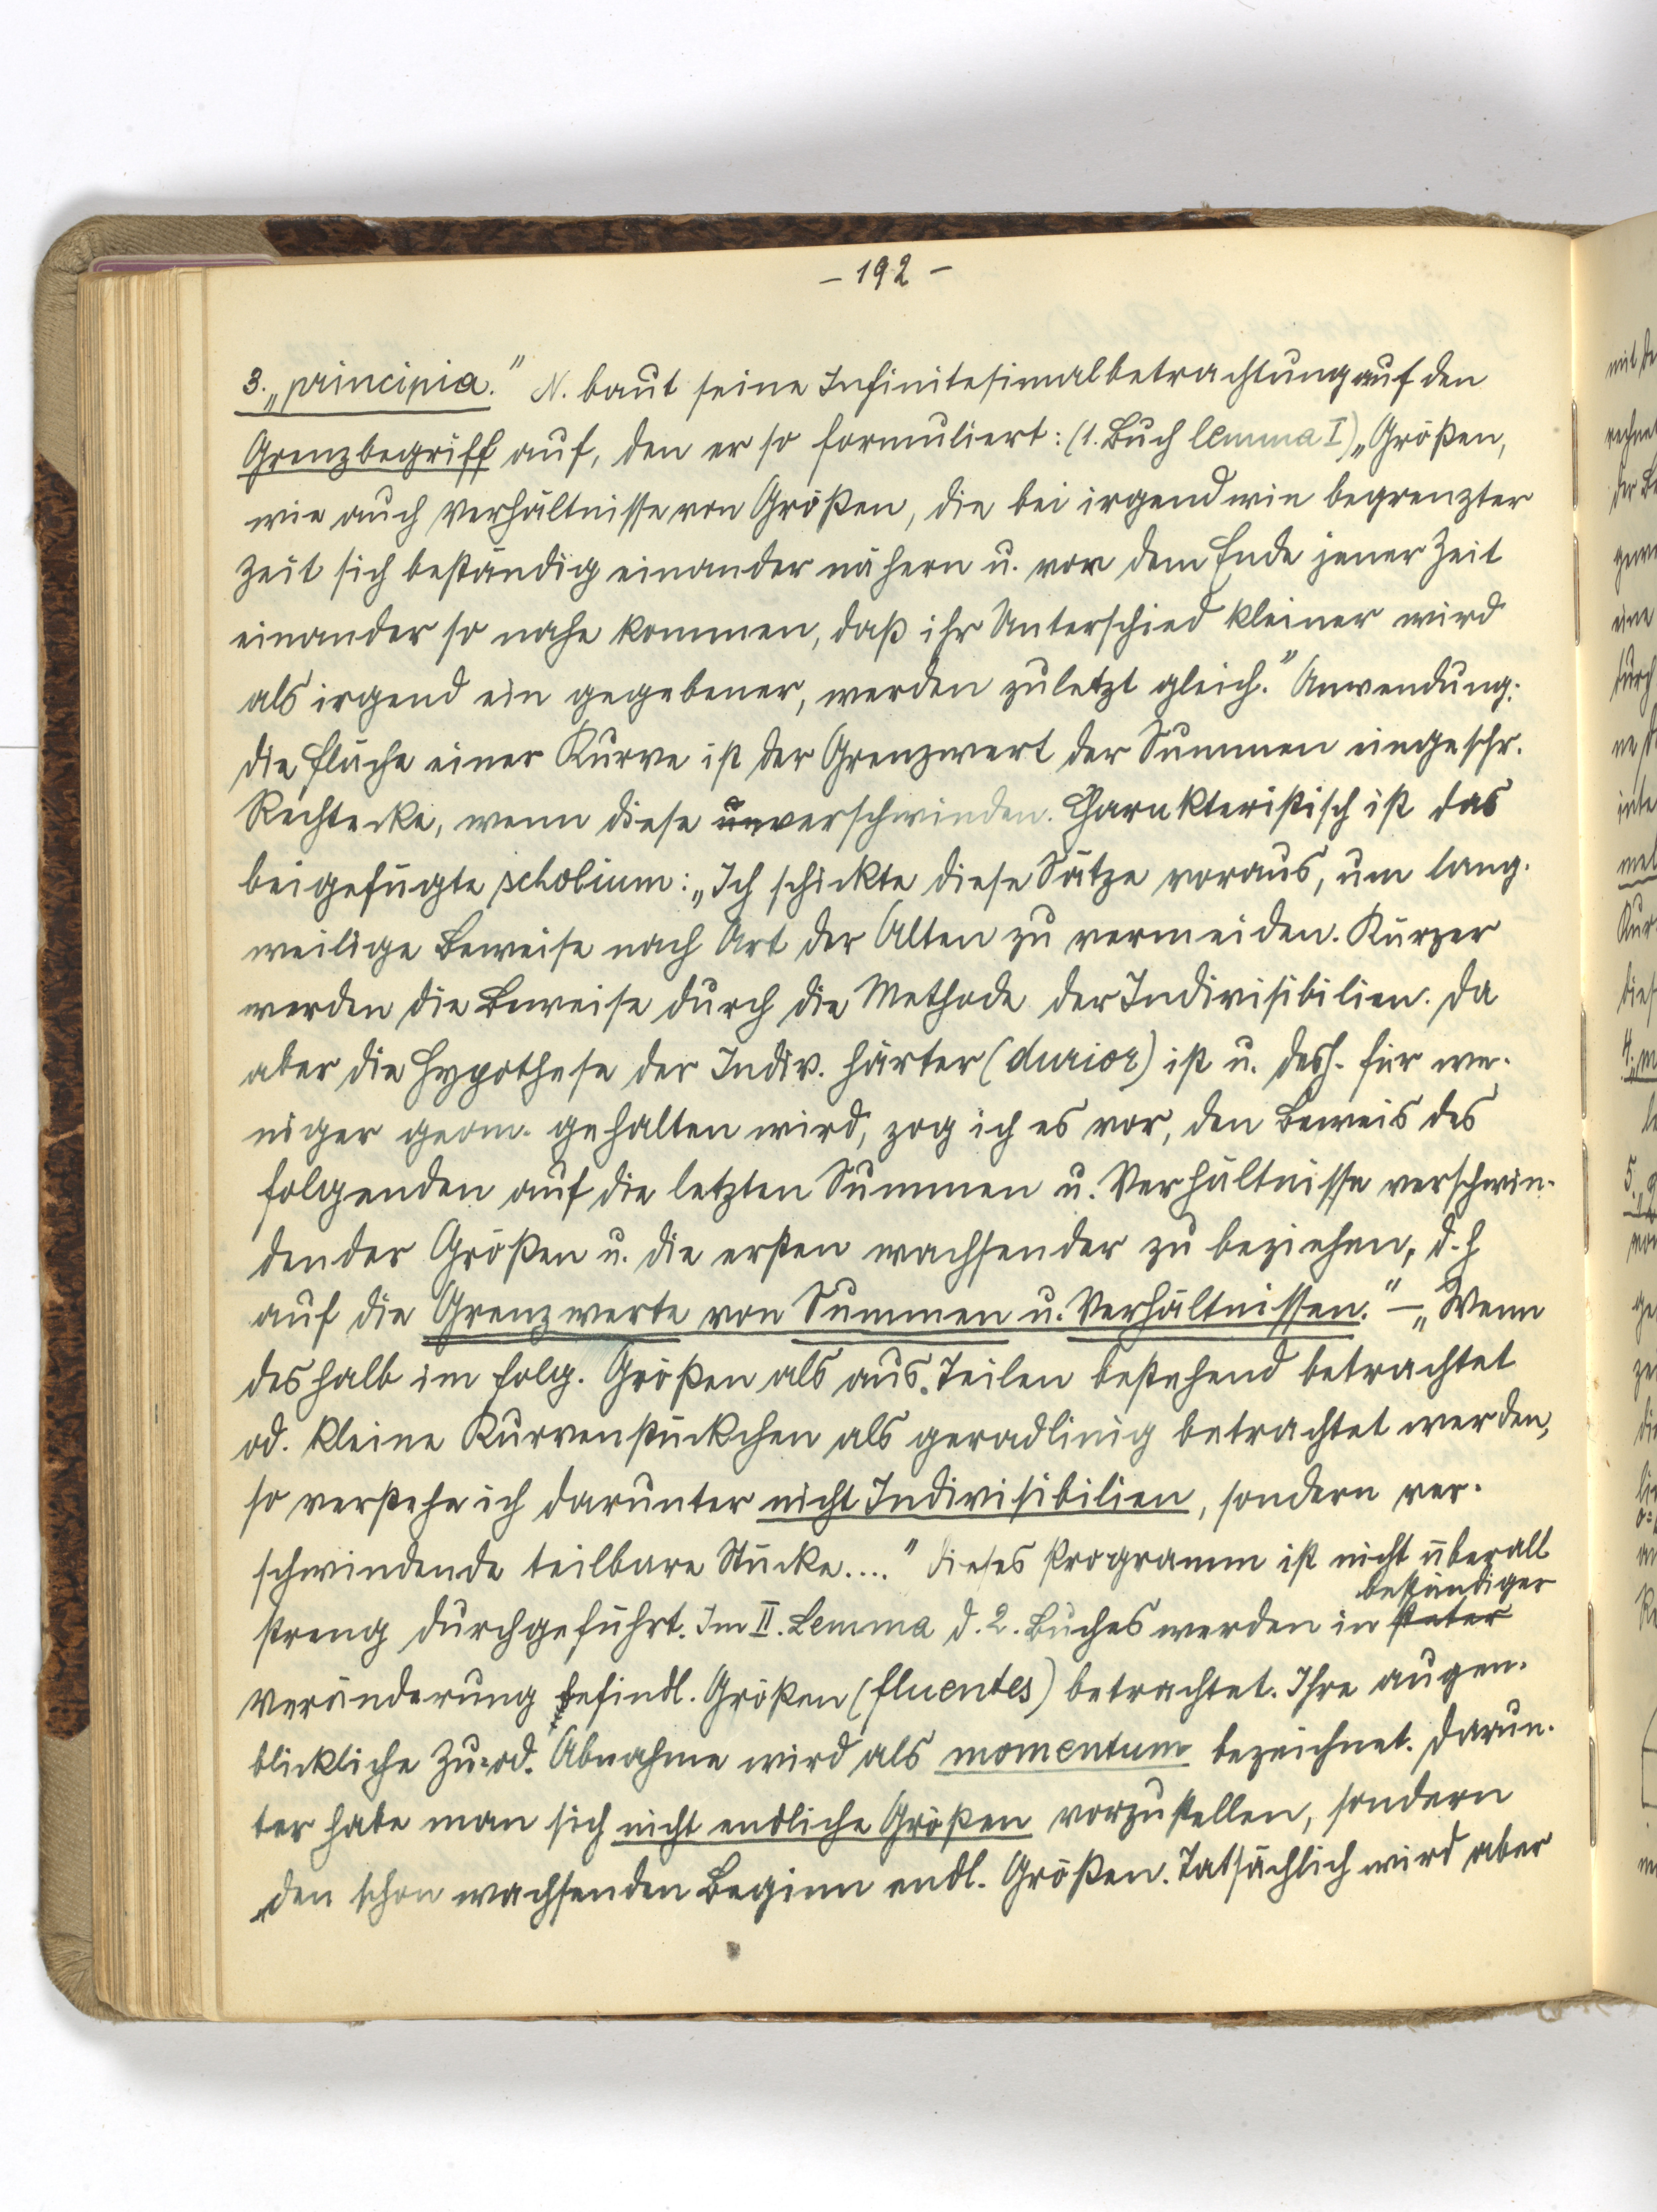 - 192 -
3. „principia." N. baut seine Infinitesimalbetrachtung auf den
Grenzbegriff auf, den er so formuliert: (1. Buch lemma I) „Größen,
wie auch Verhältnisse von Größen, die bei irgendwie begrenzter
Zeit sich beständig einander nähern u. vor dem Ende jener Zeit
einander so nahe kommen, daß ihr Unterschied kleiner wird
als irgend ein gegebener, werden zuletzt gleich." Anwendung:
die Fläche einer Kurve ist der Grenzwert der Summen eingeschr.
Rechtecke, wenn diese verschwinden. Charakteristisch ist das
beigefügte scholium: „Ich schickte diese Sätze voraus, um lang-
weilige Beweise nach Art der Alten zu vermeiden. Kürzer
werden die Beweise durch die Methode der Indivisibilien. Da
aber die Hypothese der Indiv. härter (durior) ist u. desh. für we-
niger geom. gehalten wird, zog ich es vor, den Beweis des
folgenden auf die letzten Summen u. Verhältnisse verschwin-
dender Größen u. die ersten wachsender zu beziehen, d. h
auf die Grenzwerte von Summen u. Verhältnissen." – „Wenn
deshalb im folg. Größen als aus Teilen bestehend betrachtet
od. kleine Kurvenstückchen als geradlinig betrachtet werden,
so verstehe ich darunter nicht Indivisibilien, sondern ver-
schwindende teilbare Stücke...." Dieses Programm ist nicht überall
beständiger
streng durchgeführt. Im II. Lemma d. 2. Buches werden in steter
Veränderung befindl. Größen (fluentes) betrachtet. Ihre augen-
blickliche Zu- od. Abnahme wird als momentum bezeichnet. Darun-
ter habe man sich nicht endliche Größen vorzustellen, sondern
„den schon wachsenden Beginn endl. Größen. Tatsächlich wird aber